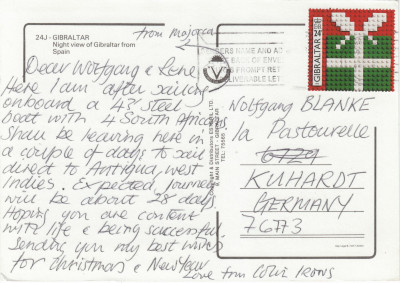 24J - GIBRALTAR
Night view of Gibraltar from
Spain
from Majorca
Dear Wolfgang & Lene
Here I am after sailing
onboard a 48' steel
boat with 4 South Africans
Shall be leaving here in
a couple of days to sail
direct to Antigua, West
Indies. Expected journey
will be about 28 days.
Hoping you are content
with life & being successful.
Sending you my best wishes
for Christmas & New Year
Love from Colin
ERS NAME AND
BACK OF ENVE
PROMPT RET
LIVERABLE LET
GIBRALTAR
24p
MAIN STREET, GIBRALTAR
Wolfgang BLANKE
la Pastourelle
6729
KUHARDT
GERMANY
76773